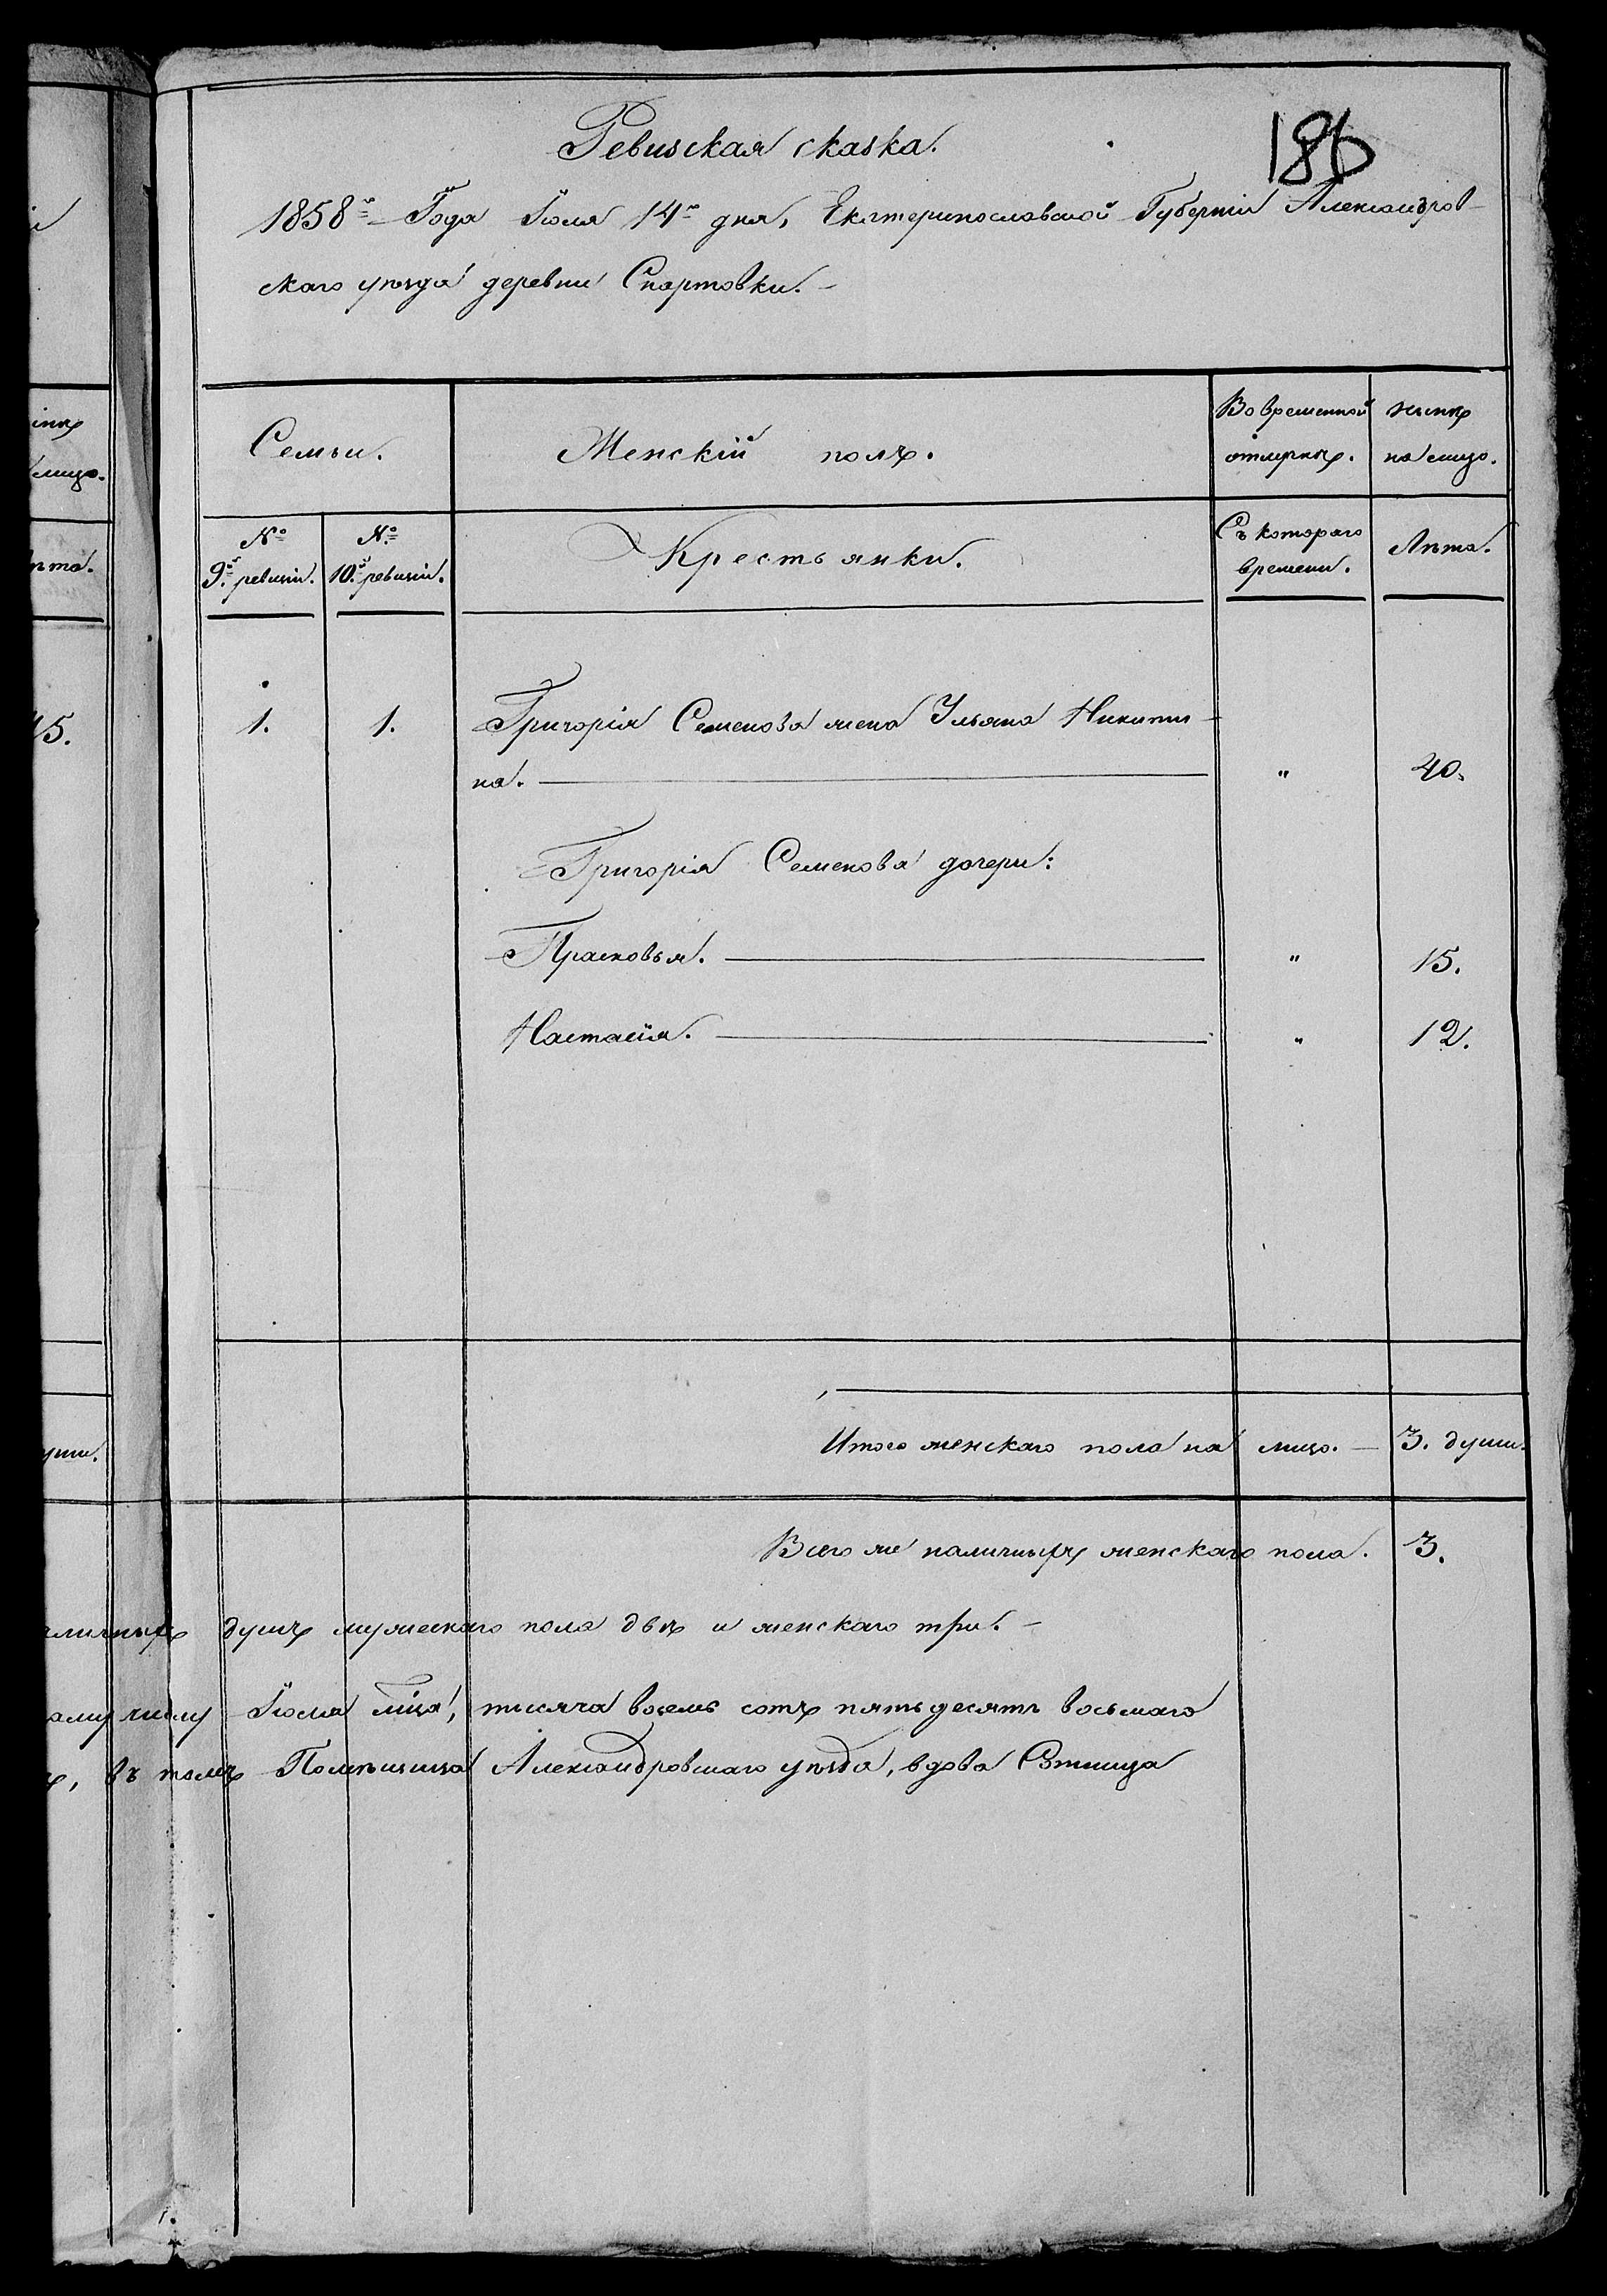 186
Ревизская сказка.
1858го Года Iюля 14го дня, Екатеринославской Губернiи Александров-
скаго уѣзда деревни Спартовки.
Семьи.
Женскiй полъ.
Во временной отлучкѣ.
нынѣ на лицо.
№ 9й ревизiи.
№ 10й ревизiи.
Крестьянки.
Съ котораго времени.
Лѣта.
1. 1. Григорiя Семенова жена Ульяна Никити-
на. " 40.
Григорiя Семенова дочери:
Прасковья. " 15.
Настасiя. " 12.
Итого женскаго пола на лицо. — 3. души.
Всего же наличныхъ женскаго пола. 3.
душъ мужескаго пола двѣ и женскаго три. —
числу Iюля мца, тысяча восемь сотъ пятьдесятъ восьмаго
въ томъ Помѣщица Александровскаго уѣзда, вдова
45.